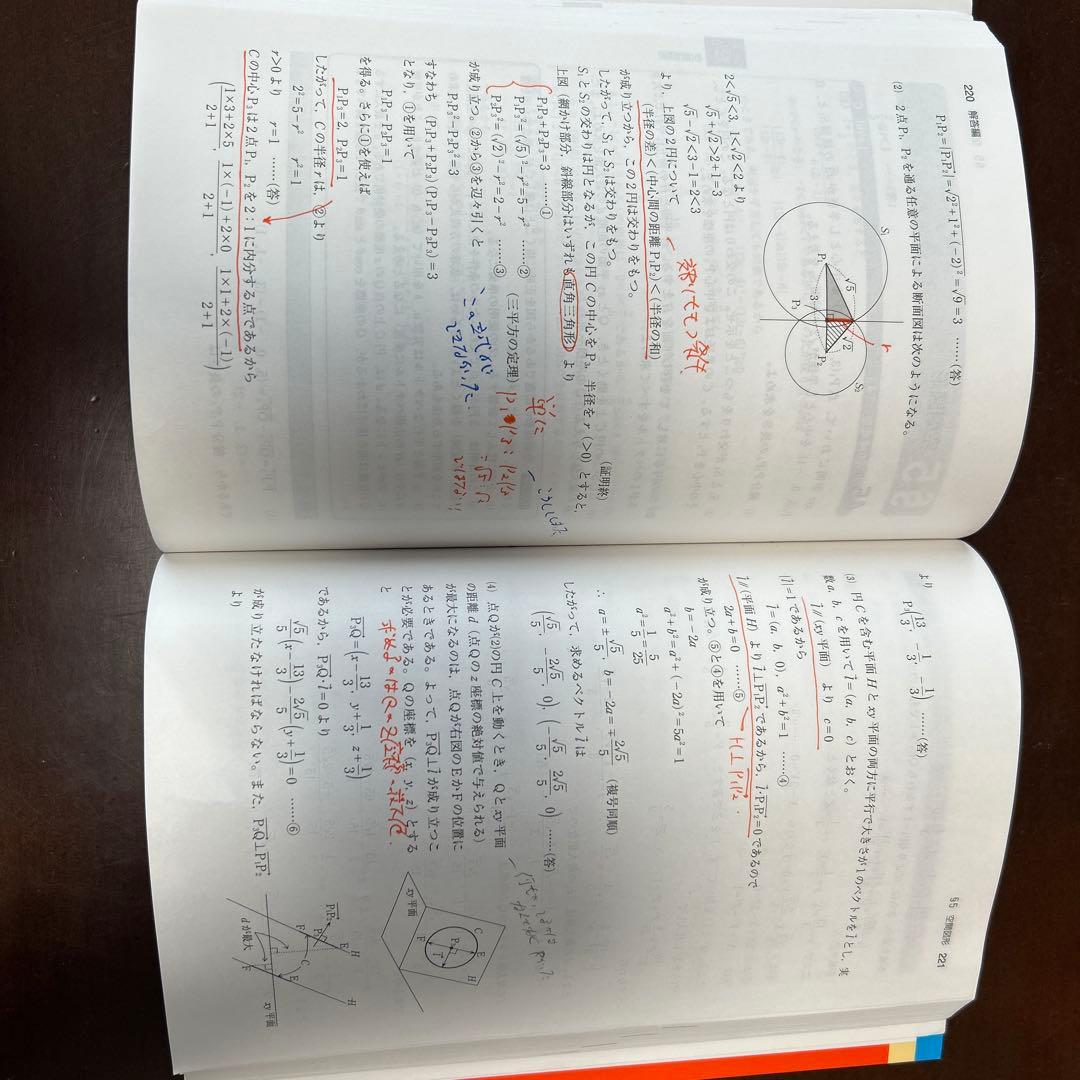 220 解答編
P₁P₂=|P₁P₂|=√2²+1²+(−2)²=√9=3 ……(答)
(2) 2点P₁，P₂を通る任意の平面による断面図は次のようになる。
S₁
S₂
P₁
P₂
P₃
√5
√2
3
r
2<√5<3，1<√2<2より
√5+√2>2+1=3
√5−√2<3−1=2<3
より，上図の2円について
(半径の差)<(中心間の距離P₁P₂)<(半径の和)
が成り立つから，この2円は交わりをもつ。
したがって，S₁とS₂は交わりをもつ。 (証明終)
S₁とS₂の交わりは円となるが，この円Cの中心をP₃，半径をr(>0)とすると，
上図（網かけ部分，斜線部分はいずれも直角三角形）より
P₁P₃+P₂P₃=3 ……①
P₁P₃²=(√5)²−r²=5−r² ……②
P₂P₃²=(√2)²−r²=2−r² ……③ (三平方の定理)
が成り立つ。②から③を辺々引くと
P₁P₃²−P₂P₃²=3
すなわち (P₁P₃+P₂P₃)(P₁P₃−P₂P₃)=3
となり，①を用いて
P₁P₃−P₂P₃=1
を得る。さらに①を使えば
P₁P₃=2，P₂P₃=1
したがって，Cの半径rは，②より
2²=5−r² r²=1
r>0より r=1 ……(答)
Cの中心P₃は2点P₁，P₂を2：1に内分する点であるから
(1×3+2×5/2+1，1×(−1)+2×0/2+1，1×1+2×(−1)/2+1)
§5 空間図形 221
より P₃(13/3，−1/3，−1/3) ……(答)
(3) 円Cを含む平面Hとxy平面の両方に平行で大きさが1のベクトルをl⃗とし，実
数a，b，cを用いてl⃗=(a，b，c)とおく。
l⃗∥(xy平面) より c=0
|l⃗|=1であるから
l⃗=(a，b，0)，a²+b²=1 ……④
l⃗∥(平面H) よりl⃗⊥P₁P₂であるから，l⃗・P₁P₂=0であるので
2a+b=0 ……⑤
H⊥P₁P₂.
が成り立つ。⑤と④を用いて
b=−2a
a²+b²=a²+(−2a)²=5a²=1
a²=1/5=5/25
∴ a=±√5/5，b=−2a=∓2√5/5 (複号同順)
したがって，求めるベクトルl⃗は
(√5/5，−2√5/5，0)，(−√5/5，2√5/5，0) ……(答)
(4) 点Qが(2)の円C上を動くとき，Qとxy平面
の距離d（点Qのz座標の絶対値で与えられる）
が最大になるのは，点Qが右図のEかFの位置に
あるときである。よって，P₃Q⊥l⃗が成り立つこ
とが必要である。Qの座標を(x，y，z)とする
と
P₃Q=(x−13/3，y+1/3，z+1/3)
であるから，P₃Q・l⃗=0より
√5/5(x−13/3)−2√5/5(y+1/3)=0 ……⑥
が成り立たなければならない。また，P₃Q⊥P₁P₂
より
C
E
H
P₃
l⃗
F
xy平面
P₁P₂
E
H
P₃
C
F
E
H
dが最大
xy平面